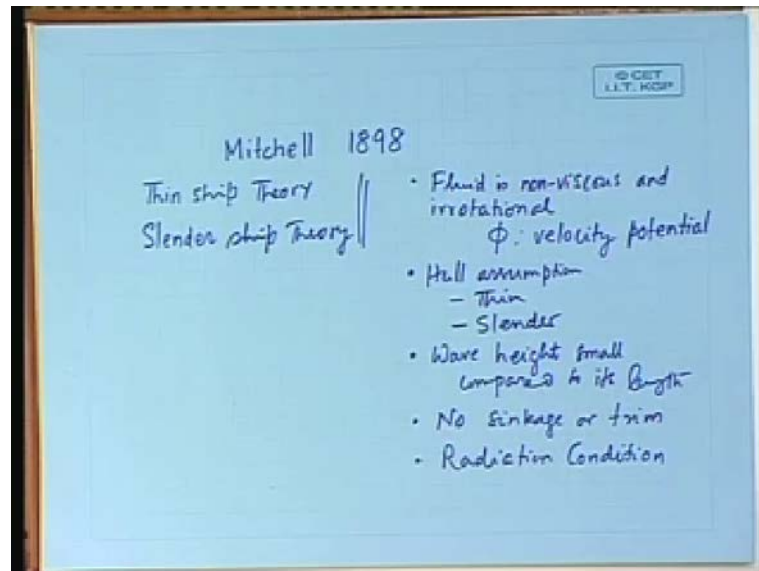 © CET
I.I.T. KGP
Mitchell 1898
Thin ship Theory
Slender ship Theory
• Fluid is non-viscous and
irrotational
Φ : velocity potential
• Hull assumption
– Thin
– Slender
• Wave height small
compared to its length
• No sinkage or trim
• Radiction Condition